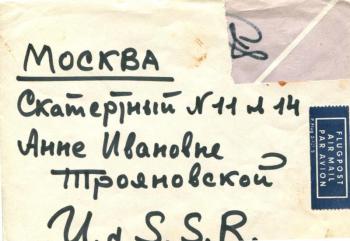 МОСКВА
Скатертный N 11 м 14
Анне Ивановне
Трояновской
U.d S.S.R.
FLUGPOST
AIR MAIL
PAR AVION